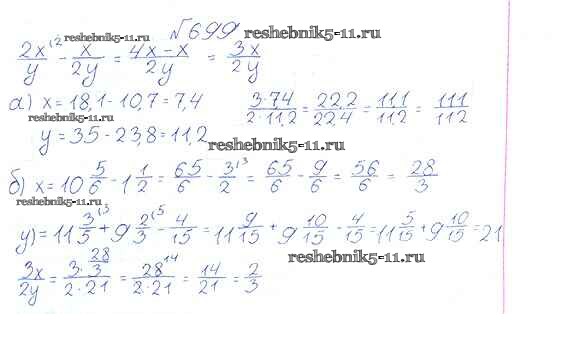 №699 reshebnik5-11.ru
2x/y ·2 - x/2y = 4x-x/2y = 3x/2y
reshebnik5-11.ru
а) x = 18,1-10,7 = 7,4 3·7,4/2·11,2 = 22,2/22,4 = 11,1/11,2 = 111/112
reshebnik5-11.ru
y = 35 - 23,8 = 11,2 reshebnik5-11.ru
б) x = 10 5/6 - 1 1/2 = 65/6 - 3/2 ·3 = 65/6 - 9/6 = 56/6 = 28/3
reshebnik5-11.ru
y) = 11 3/5 ·3 + 9 2/3 ·5 - 4/15 = 11 9/15 + 9 10/15 - 4/15 = 11 5/15 + 9 10/15 = 21
reshebnik5-11.ru
3x/2y = 3·28/3/2·21 = 28 14/2·21 = 14/21 = 2/3